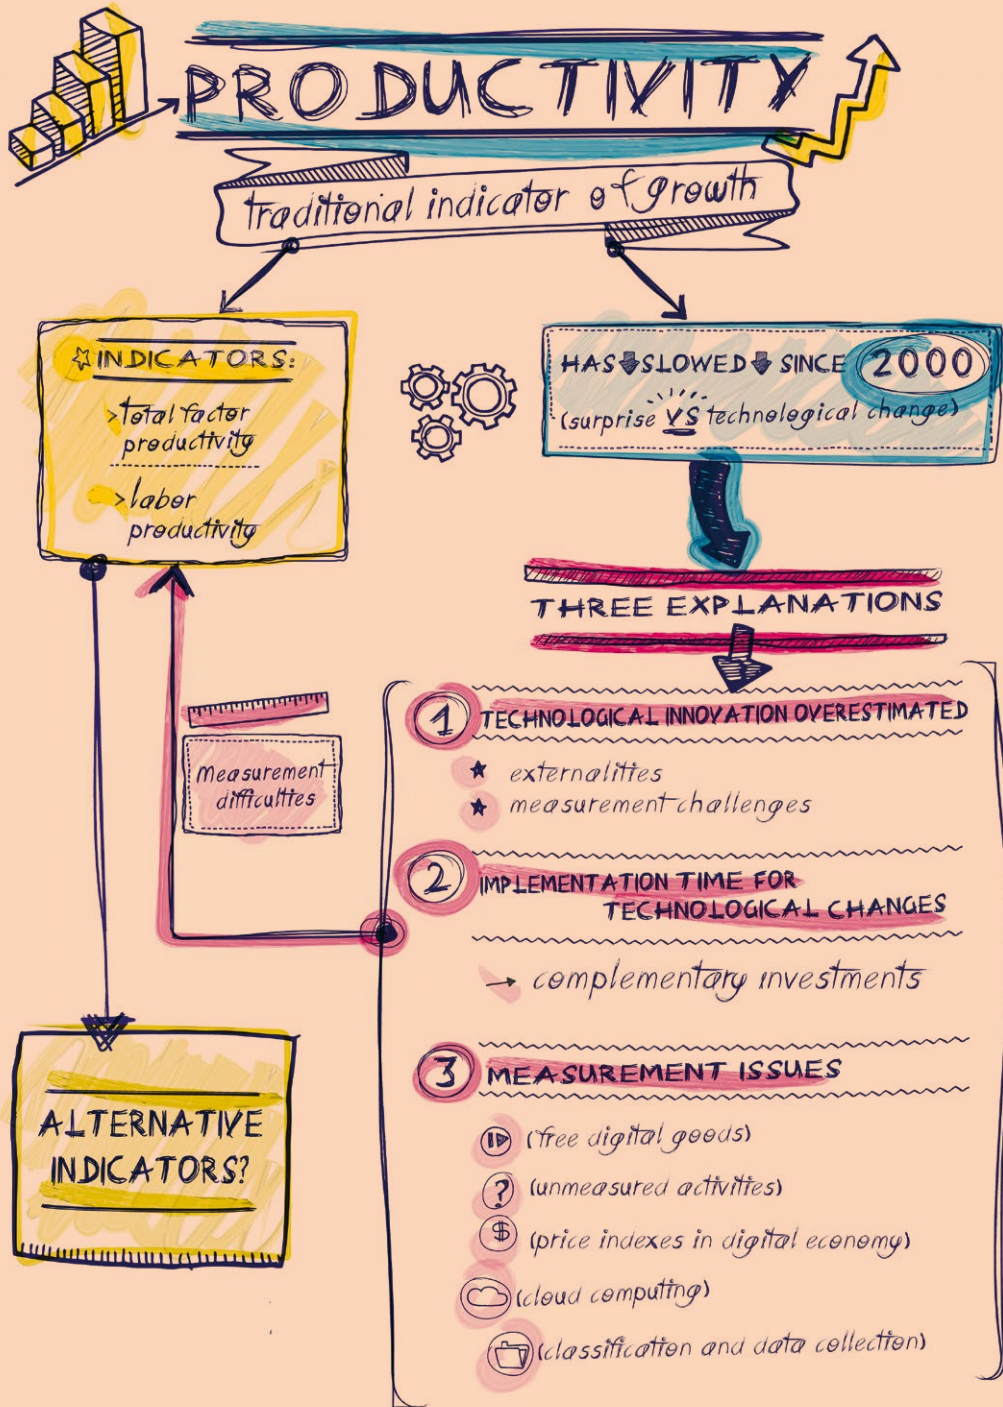 PRODUCTIVITY
traditional indicator of growth
INDICATORS:
>total factor
productivity
>labor
productivity
HAS SLOWED SINCE 2000
(surprise VS technological change)
THREE EXPLANATIONS
Measurement
difficulties
1 TECHNOLOGICAL INNOVATION OVERESTIMATED
externalities
measurement challenges
2 IMPLEMENTATION TIME FOR
TECHNOLOGICAL CHANGES
complementary investments
3 MEASUREMENT ISSUES
(free digital goods)
? (unmeasured activities)
$ (price indexes in digital economy)
(cloud computing)
(classification and data collection)
ALTERNATIVE
INDICATORS?